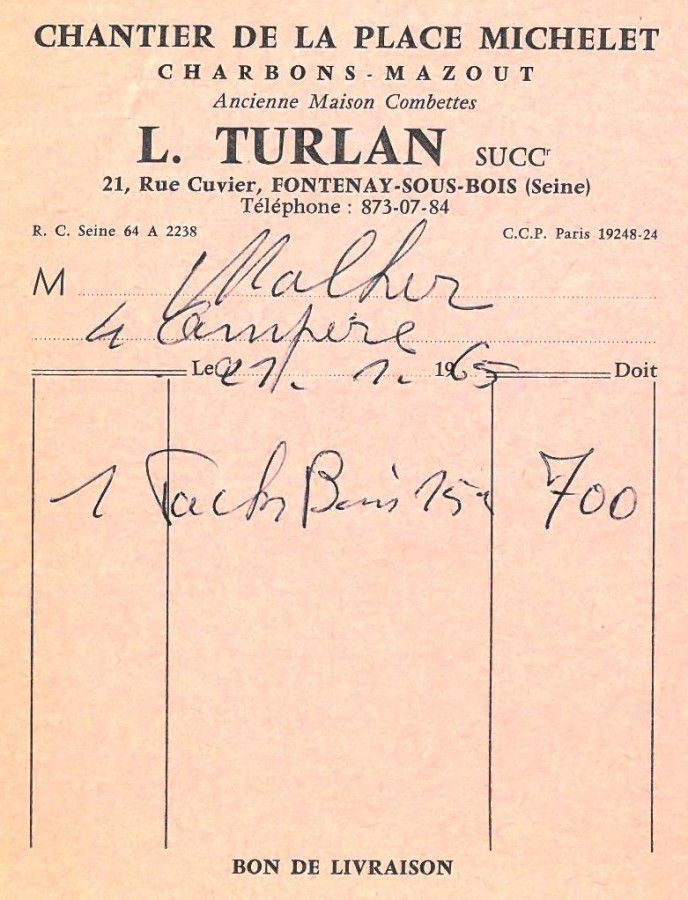 CHANTIER DE LA PLACE MICHELET
CHARBONS - MAZOUT
Ancienne Maison Combettes
L. TURLAN SUCCr
21, Rue Cuvier, FONTENAY-SOUS-BOIS (Seine)
Téléphone : 873-07-84
R. C. Seine 64 A 2238 C.C.P. Paris 19248-24
M Malher
4 Ampère
Le 21. 1. 1965 Doit
1 Bois 700
BON DE LIVRAISON